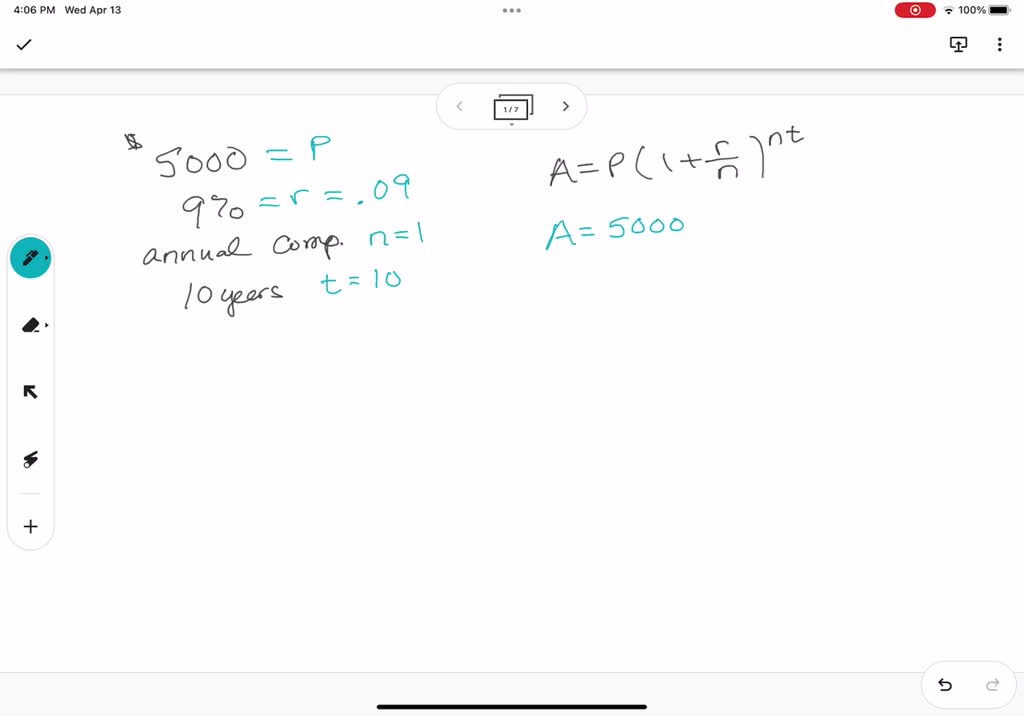 4:06 PM Wed Apr 13
100%
1/7
$ 5000 = P
9% = r = .09
annual comp. n=1
10 years t = 10
A=P(1+r/n)^nt
A= 5000